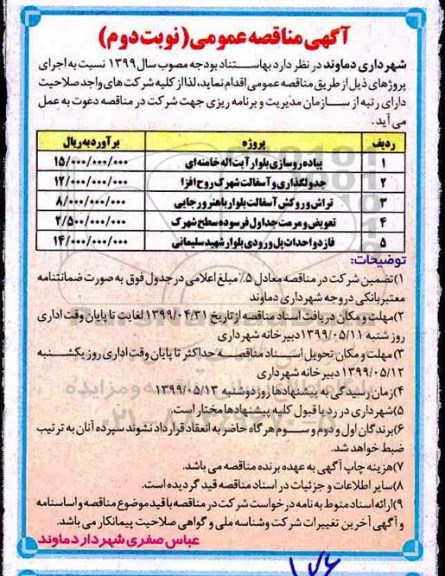 آگهی مناقصه عمومی (نوبت دوم)
شهرداری دماوند در نظر دارد به استناد بودجه مصوب سال ۱۳۹۹ نسبت به اجرای
پروژهای ذیل از طریق مناقصه عمومی اقدام نماید، لذا از کلیه شرکت های واجد صلاحیت
دارای رتبه از سازمان مدیریت و برنامه ریزی جهت شرکت در مناقصه دعوت به عمل
می آید.
ردیف پروژه برآورد به ریال
۱ پیاده روسازی بلوار آیت اله خامنه ای ۱۵/۰۰۰/۰۰۰/۰۰۰
۲ جدولگذاری و آسفالت شهرک روح افزا ۱۲/۰۰۰/۰۰۰/۰۰۰
۳ تراش و روکش آسفالت بلوار باهنر و رجایی ۸/۰۰۰/۰۰۰/۰۰۰
۴ تعویض و مرمت جداول فرسوده سطح شهرک ۲/۵۰۰/۰۰۰/۰۰۰
۵ فاز دو احداث پل ورودی بلوار شهید سلیمانی ۱۴/۰۰۰/۰۰۰/۰۰۰
توضیحات:
۱) تضمین شرکت در مناقصه معادل ۵٪ مبلغ اعلامی در جدول فوق به صورت ضمانتنامه
معتبر بانکی در وجه شهرداری دماوند
۲) مهلت و مکان دریافت اسناد مناقصه از تاریخ ۱۳۹۹/۰۴/۳۱ لغایت تا پایان وقت اداری
روز شنبه ۱۳۹۹/۰۵/۱۱ دبیرخانه شهرداری
۳) مهلت و مکان تحویل اسناد مناقصه حداکثر تا پایان وقت اداری روز یکشنبه
۱۳۹۹/۰۵/۱۲ دبیرخانه شهرداری
۴) زمان رسیدگی به پیشنهادها روز دوشنبه ۱۳۹۹/۰۵/۱۳
۵) شهرداری در رد یا قبول کلیه پیشنهادها مختار است.
۶) برندگان اول و دوم و سوم هر گاه حاضر به انعقاد قرارداد نشوند سپرده آنان به ترتیب
ضبط خواهد شد.
۷) هزینه چاپ آگهی به عهده برنده مناقصه می باشد.
۸) سایر اطلاعات و جزئیات در اسناد مناقصه قید گردیده است.
۹) ارائه اسناد منوط به نامه درخواست شرکت در مناقصه با قید موضوع مناقصه و اساسنامه
و آگهی آخرین تغییرات شرکت و شناسه ملی و گواهی صلاحیت پیمانکار می باشد.
عباس صفری شهردار دماوند